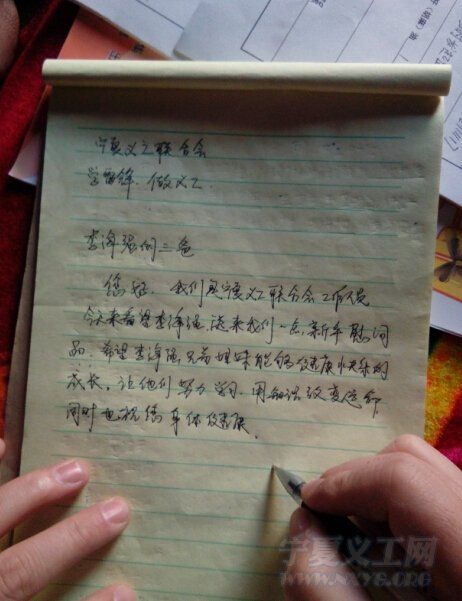 宁夏义工联合会
学雷锋.做义工.
李泽强的二爸
您好.我们是宁夏义工联合会工作人员
今天来看望李泽强.送来我们一点新年慰问
品.希望李泽强兄弟姐妹能够健康快乐的
成长.让他们努力学习.用知识改变命运
同时也祝您身体健康.
宁夏义工网
WWW.NXYG.ORG